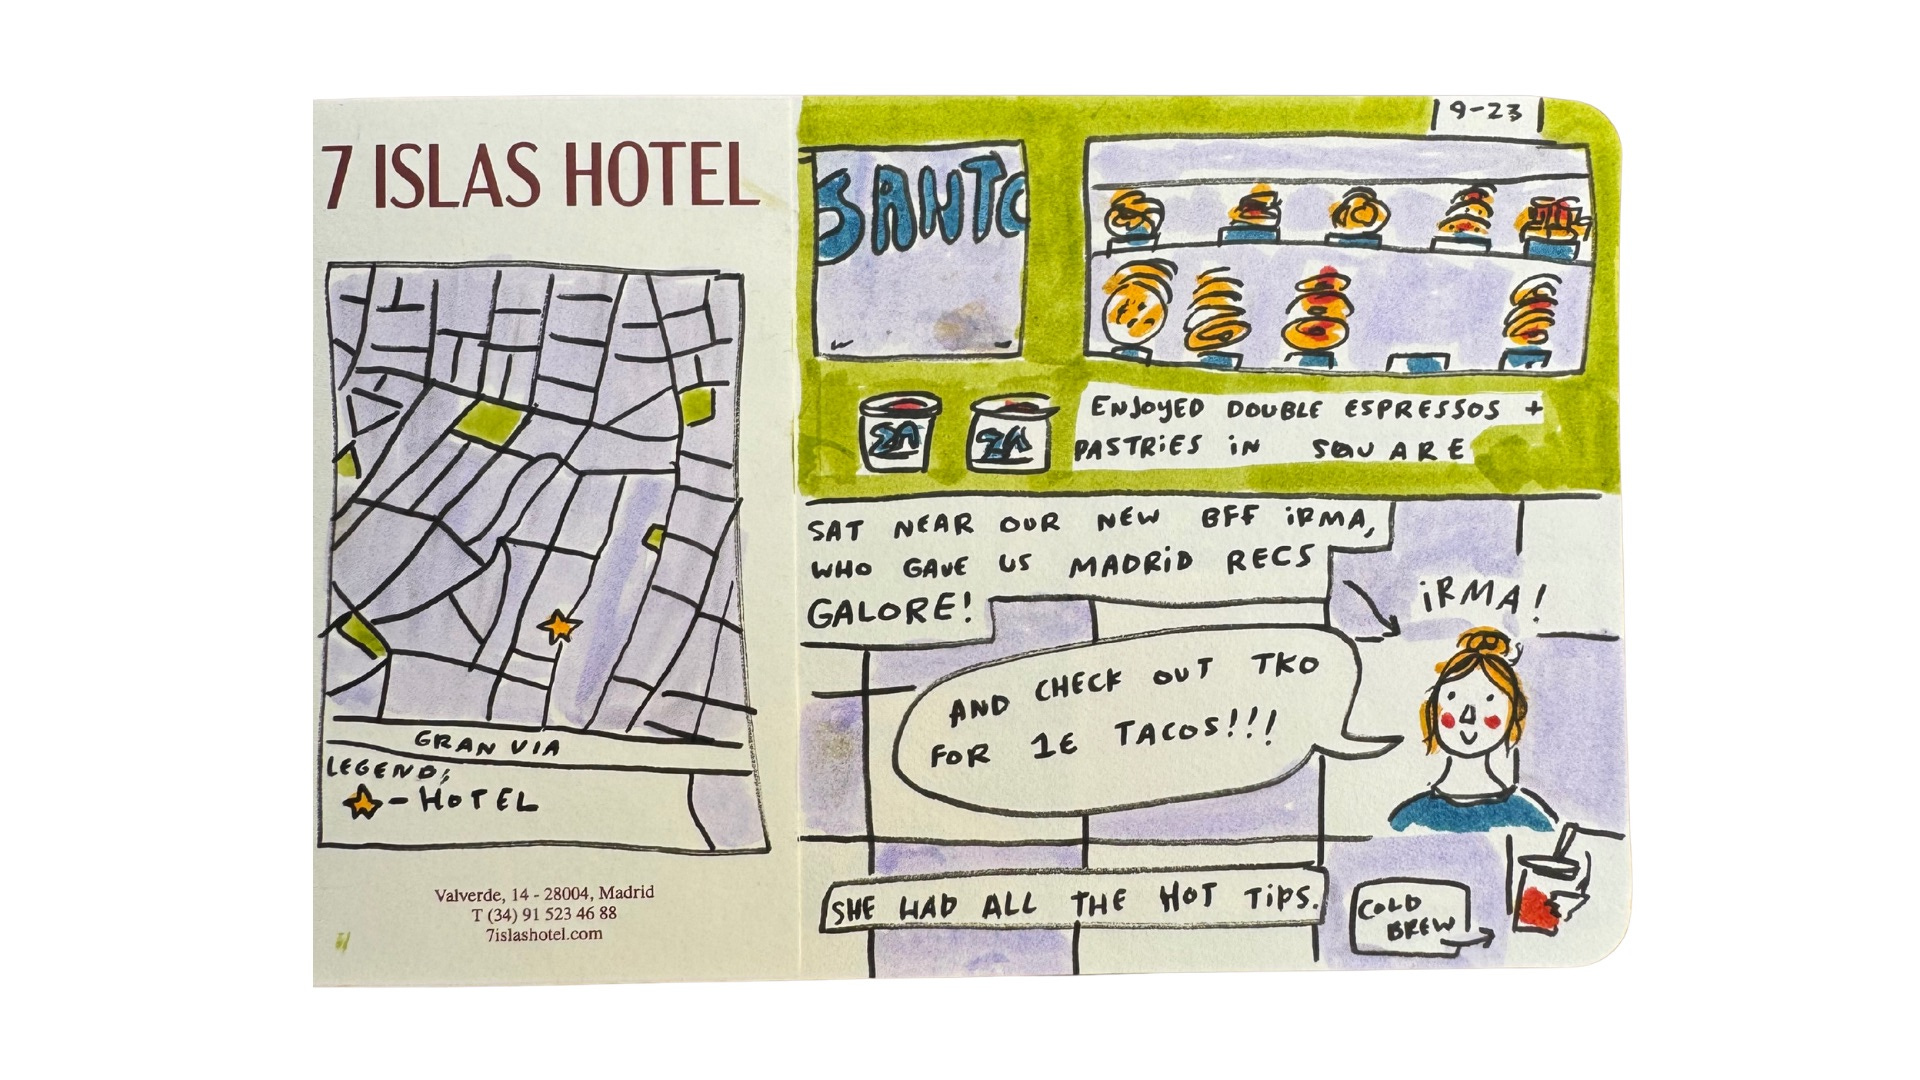 7 ISLAS HOTEL
GRAN VIA
LEGEND;
- HOTEL
Valverde, 14 - 28004, Madrid
T (34) 91 523 46 88
7islashotel.com
9-23
SANTO
SA
SA
ENJOYED DOUBLE ESPRESSOS +
PASTRiES iN SQUARE
SAT NEAR OUR NEW BFF iRMA,
WHO GAVE US MADRiD RECS
GALORE!
iRMA!
AND CHECK OUT TKO
FOR 1€ TACOS!!!
SHE HAD ALL THE HOT TiPS.
COLD
BREW